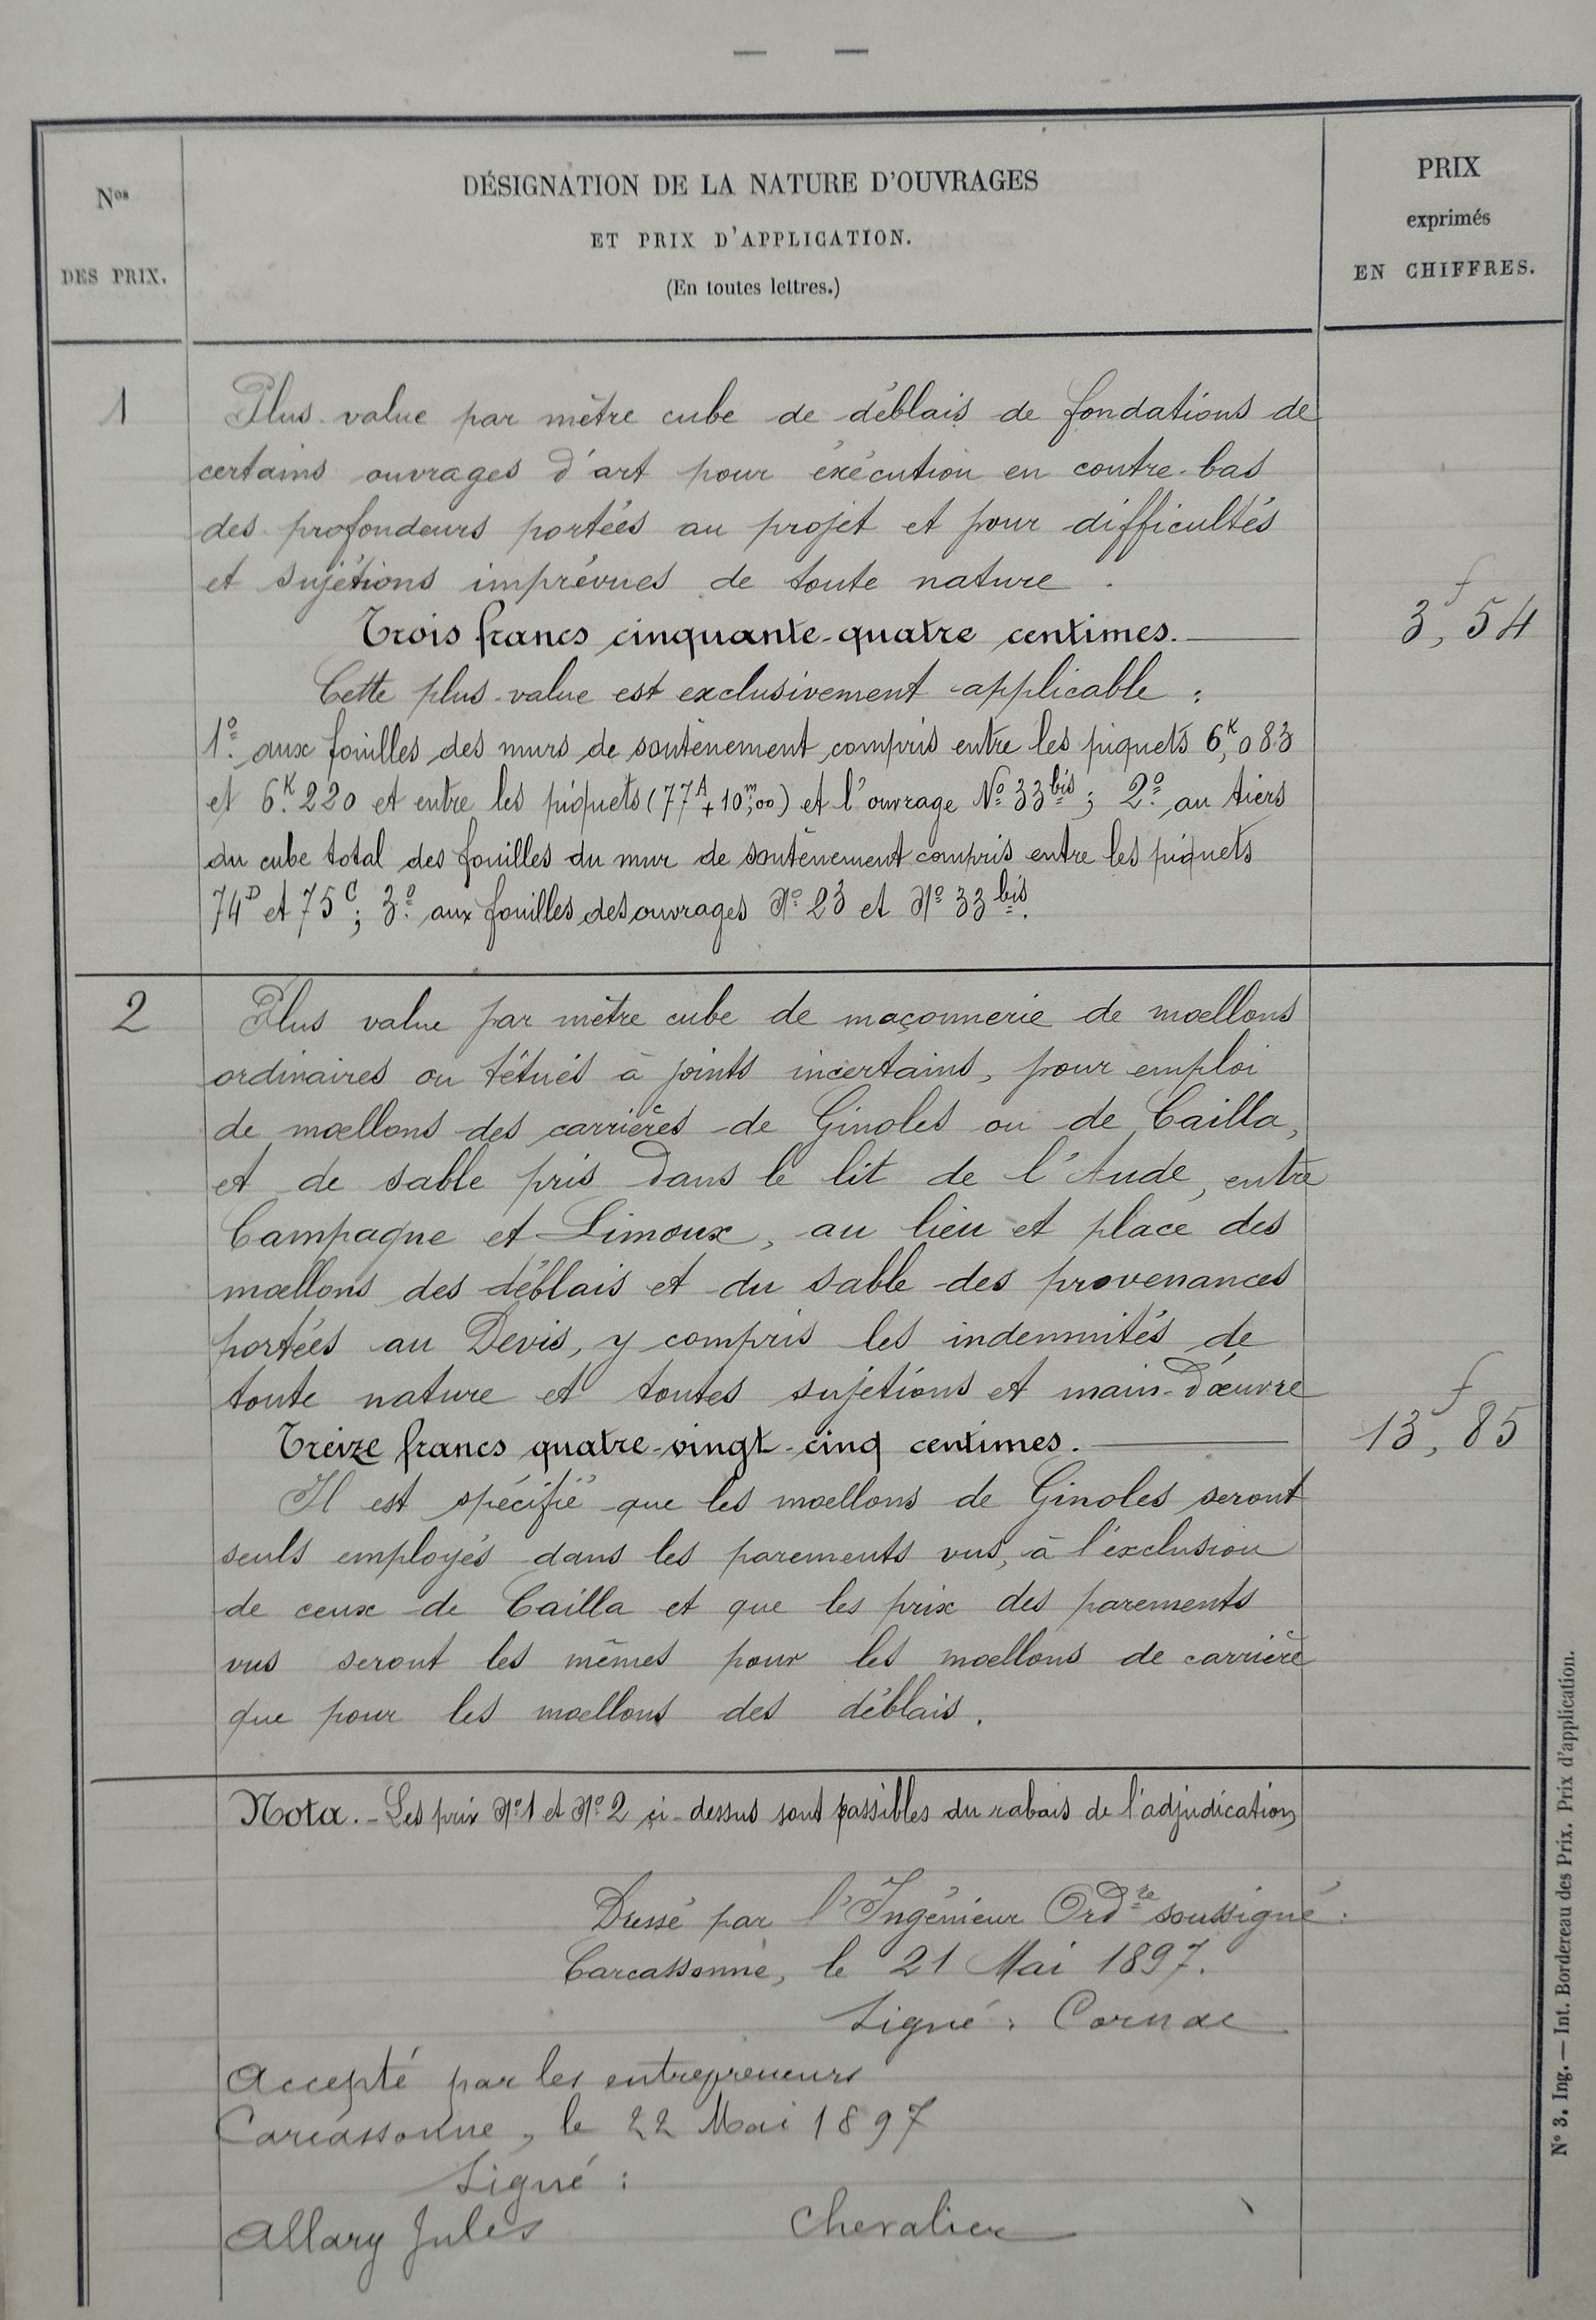 Nos
DES PRIX.
DÉSIGNATION DE LA NATURE D'OUVRAGES
ET PRIX D'APPLICATION.
(En toutes lettres.)
PRIX
exprimés
EN CHIFFRES.
1
Plus-value par mètre cube de déblais de fondations de
certains ouvrages d'art pour éxécution en contre-bas
des profondeurs portées au projet et pour difficultés
et sujétions imprévues de toute nature.
Trois francs cinquante-quatre centimes.
3f,54
Cette plus-value est exclusivement applicable :
1º. aux fouilles des murs de soutènement compris entre les piquets 6K,083
et 6K.220 et entre les piquets (77A + 10m,00) et l'ouvrage Nº 33bis ; 2º. au tiers
du cube total des fouilles du mur de soutènement compris entre les piquets
74D et 75C ; 3º. aux fouilles des ouvrages Nº 23 et Nº 33bis.
2
Plus value par mètre cube de maçonnerie de moellons
ordinaires ou têtués à joints incertains, pour emploi
de moellons des carrières de Ginoles ou de Cailla,
et de sable pris dans le lit de l'Aude, entre
Campagne et Limoux, au lieu et place des
moellons des déblais et du sable des provenances
portées au Devis, y compris les indemnités de
toute nature et toutes sujétions et main-d'œuvre
Treize francs quatre-vingt-cinq centimes.
13f,85
Il est spécifié que les moellons de Ginoles seront
seuls employés dans les parements vus, à l'éxclusion
de ceux de Cailla et que les prix des parements
vus seront les mêmes pour les moellons de carrière
que pour les moellons des déblais.
Nota.- Les prix Nº 1 et Nº 2 çi-dessus sont passibles du rabais de l'adjudication
Dressé par l'Ingénieur Ordre soussigné :
Carcassonne, le 21 Mai 1897.
Signé : Cornac
Accepté par les entrepreneurs
Carcassonne, le 22 Mai 1897
Signé :
Allary Jules Chevalier
Nº 3. Ing. — Int. Bordereau des Prix. Prix d'application.